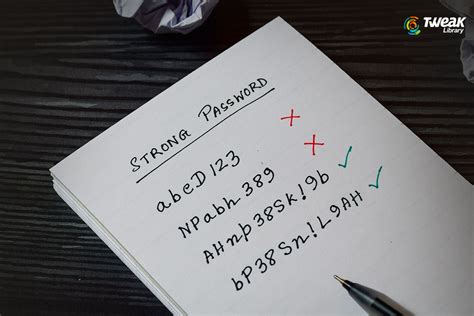 TWEAK
Library
STRONG PASSWORD
abeD123
NPabh389
AHnp38Sk!9b
bP38Sn!L9AH